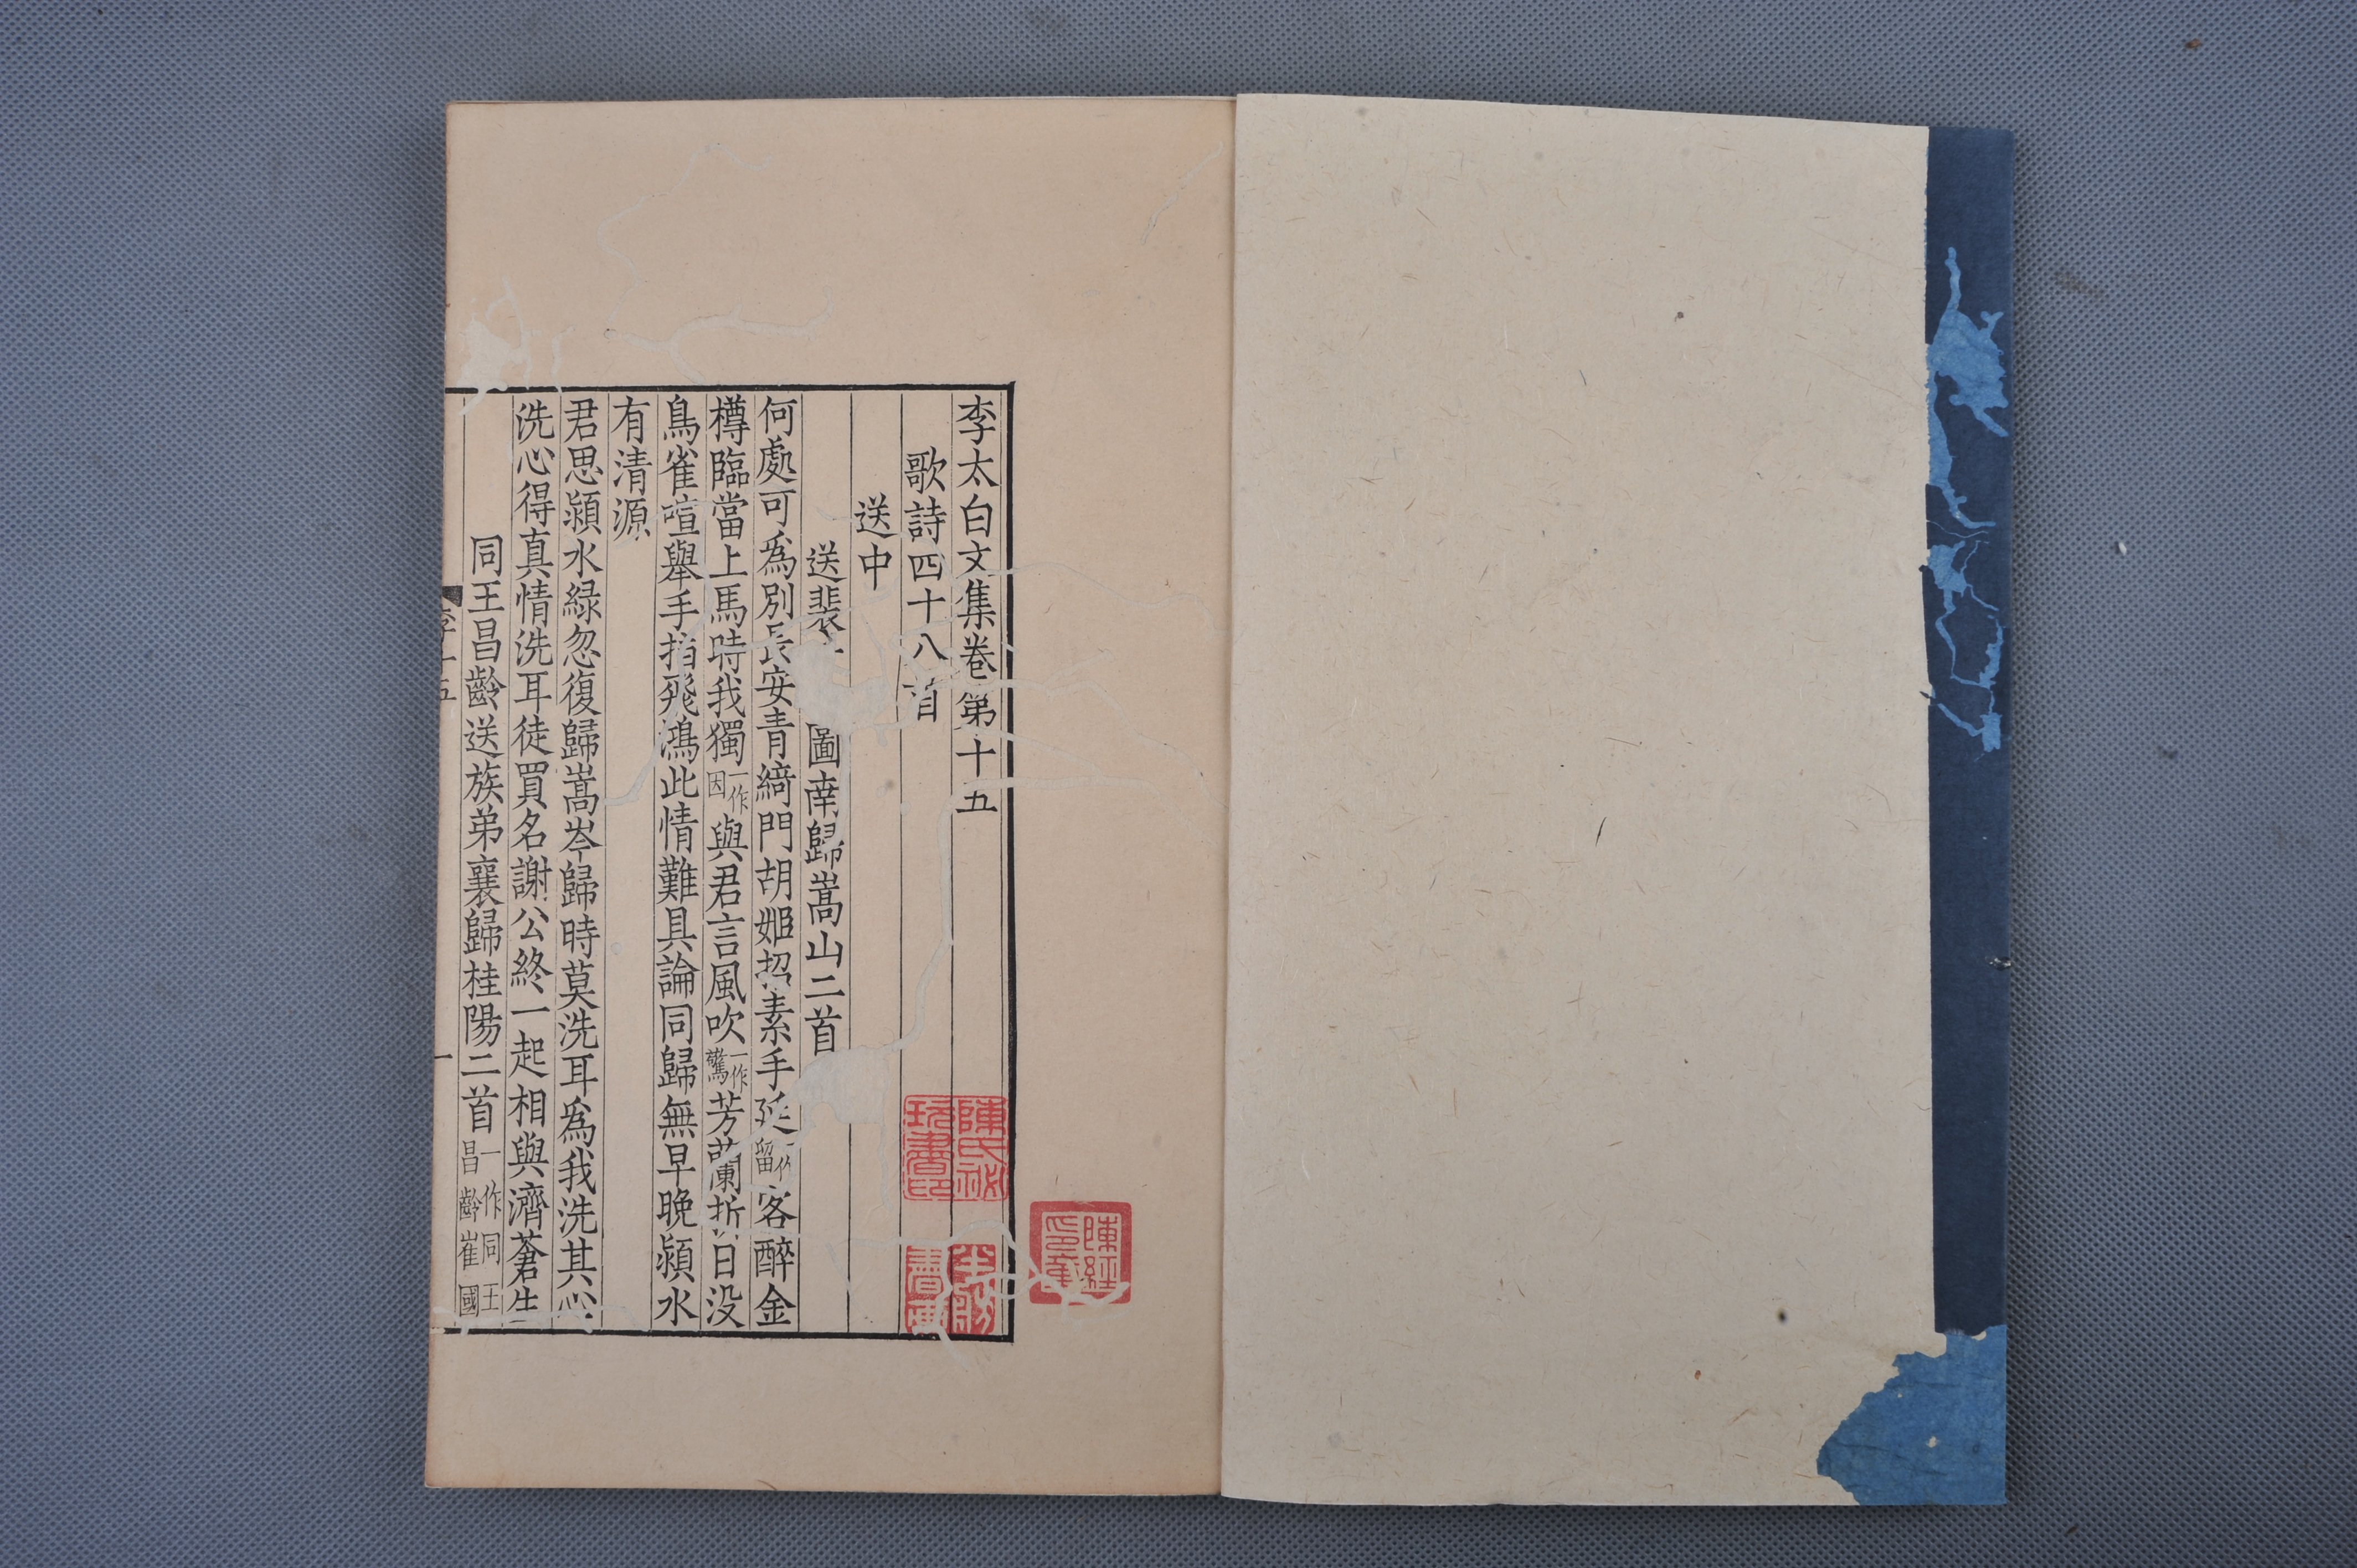 李太白文集卷第十五
歌詩四十八首
送中
送裴圖南歸嵩山二首
何處可為別長安青綺門胡姬招素手延一作留客醉金
樽臨當上馬時我獨一作因與君言風吹一作驚芳蘭折日没
鳥雀喧舉手指飛鴻此情難具論同歸無早晚潁水
有清源
君思潁水緑忽復歸嵩岑歸時莫洗耳為我洗其心
洗心得真情洗耳徒買名謝公終一起相與濟蒼生
同王昌齡送族弟襄歸桂陽二首一作同王昌齡崔國
李十五
一
陳氏祕玩書印
陳經印章